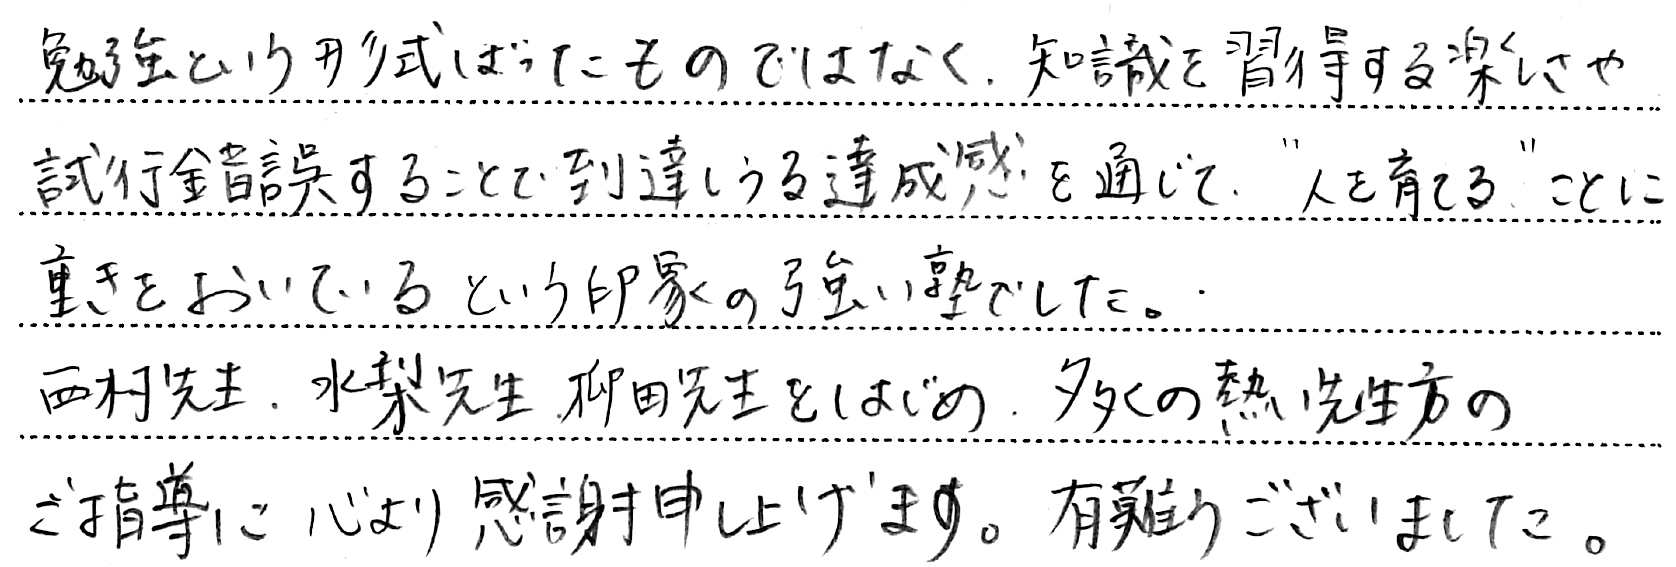 勉強という形式ばったものではなく、知識を習得する楽しさや
試行錯誤することで到達しうる達成感を通じて、"人を育てる"ことに
重きをおいているという印象の強い塾でした。
西村先生、水梨先生、柳田先生をはじめ、多くの熱い先生方の
ご指導に心より感謝申し上げます。有難うございました。